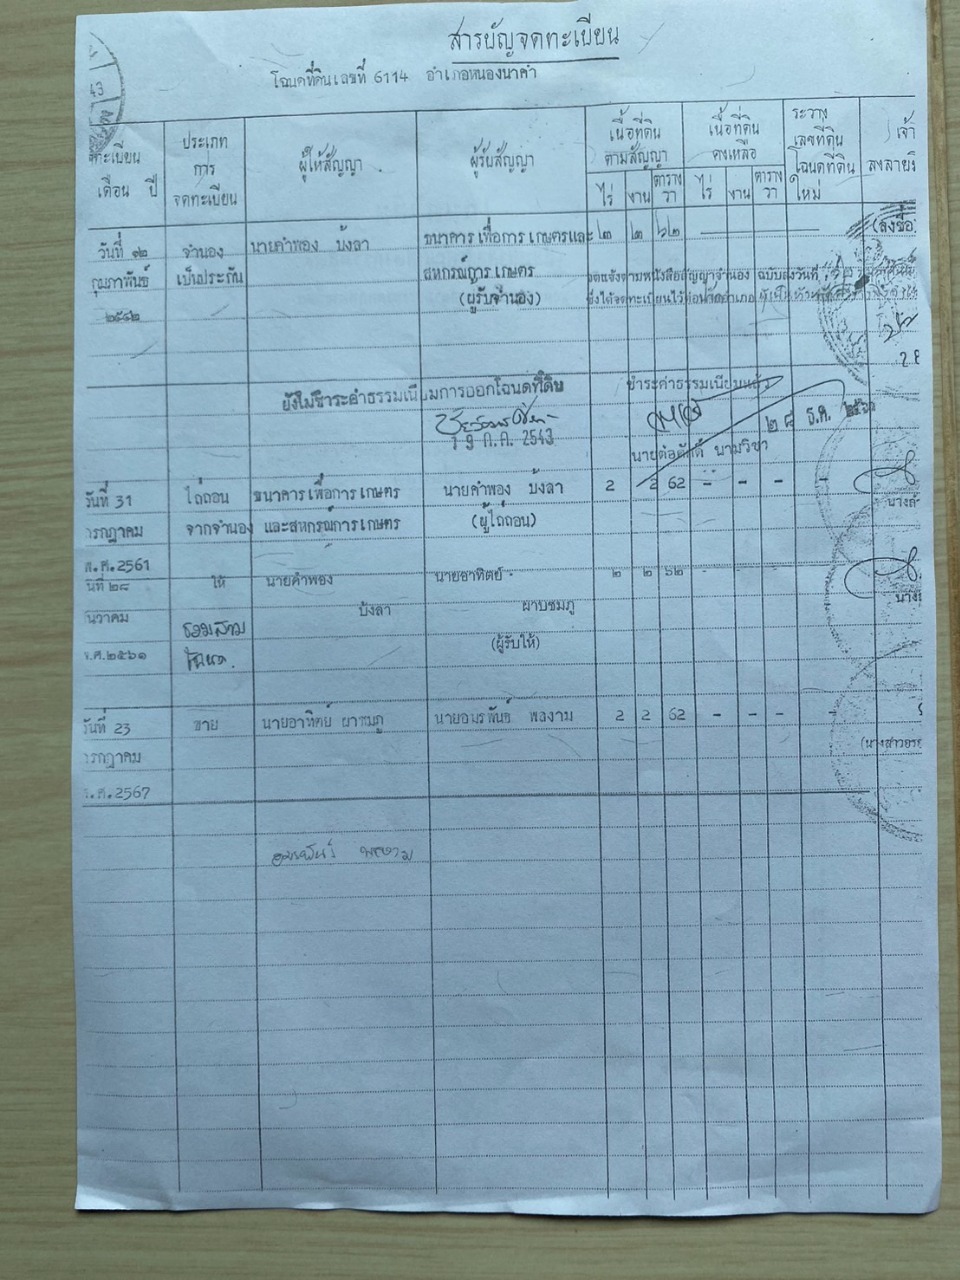 สารบัญจดทะเบียน
โฉนดที่ดินเลขที่ 6114 อำเภอหนองนาคำ
43
ทะเบียน
เดือน ปี
ประเภท
การ
จดทะเบียน
ผู้ให้สัญญา
ผู้รับสัญญา
เนื้อที่ดิน
ตามสัญญา
ไร่ งาน ตาราง
วา
เนื้อที่ดิน
คงเหลือ
ไร่ งาน ตาราง
วา
ระวาง
เลขที่ดิน
โฉนดที่ดิน
ใหม่
เจ้า
ลงลายมื
วันที่ ๑๒ จำนอง นายคำพอง บังลา ธนาคารเพื่อการเกษตรและ ๒ ๒ ๖๒ (ลงชื่อ
กุมภาพันธ์ เป็นประกัน สหกรณ์การเกษตร จดแจ้งตามหนังสือสัญญาจำนอง ฉบับลงวันที่
๒๕๔๒ (ผู้รับจำนอง) ซึ่งได้จดทะเบียนไว้ก่อน
ยังไม่ชำระค่าธรรมเนียมการออกโฉนดที่ดิน ชำระค่าธรรมเนียมแล้ว
1 9 ก.ค. 2543
๒๘ ธ.ค. ๒๕๖๑
นายต่อศักดิ์ นามวิชา
วันที่ 31 ไถ่ถอน ธนาคารเพื่อการเกษตร นายคำพอง บังลา 2 2 62 - - - -
กรกฎาคม จากจำนอง และสหกรณ์การเกษตร (ผู้ไถ่ถอน)
พ.ศ.2561
วันที่ ๒๘ ให้ นายคำพอง นายอาทิตย์ ๒ ๒ ๖๒ - - - -
ธันวาคม บังลา ผาบชมภู
พ.ศ.๒๕๖๑ รวมสาม (ผู้รับให้)
โฉนด.
วันที่ 23 ขาย นายอาทิตย์ ผาบชมภู นายอมรพันธ์ พลงาม 2 2 62 - - - -
กรกฎาคม (นางสาวอร
พ.ศ.2567
อมรพันธ์ พลงาม